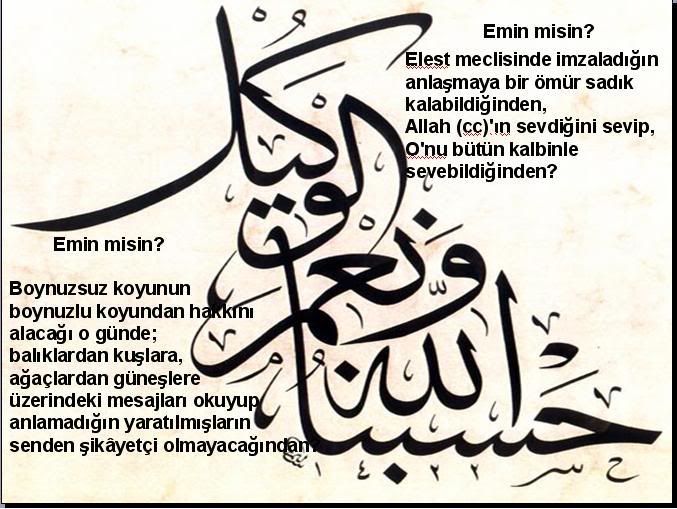 Emin misin?
Elest meclisinde imzaladığın
anlaşmaya bir ömür sadık
kalabildiğinden,
Allah (cc)'ın sevdiğini sevip,
O'nu bütün kalbinle
sevebildiğinden?
Emin misin?
Boynuzsuz koyunun
boynuzlu koyundan hakkını
alacağı o günde;
balıklardan kuşlara,
ağaçlardan güneşlere
üzerindeki mesajları okuyup
anlamadığın yaratılmışların
senden şikâyetçi olmayacağından?
حسبنا الله
ونعم
الوكيل
١٤٢٢